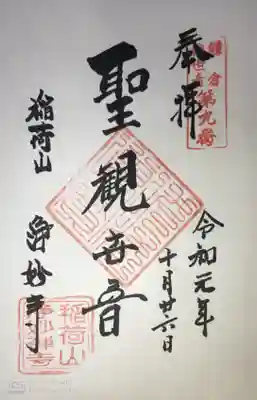 奉拝
鎌倉
観世音第九番
令和元年
十月廿六日
聖観世音
稲荷山
浄妙寺
稲荷山
浄妙禅寺